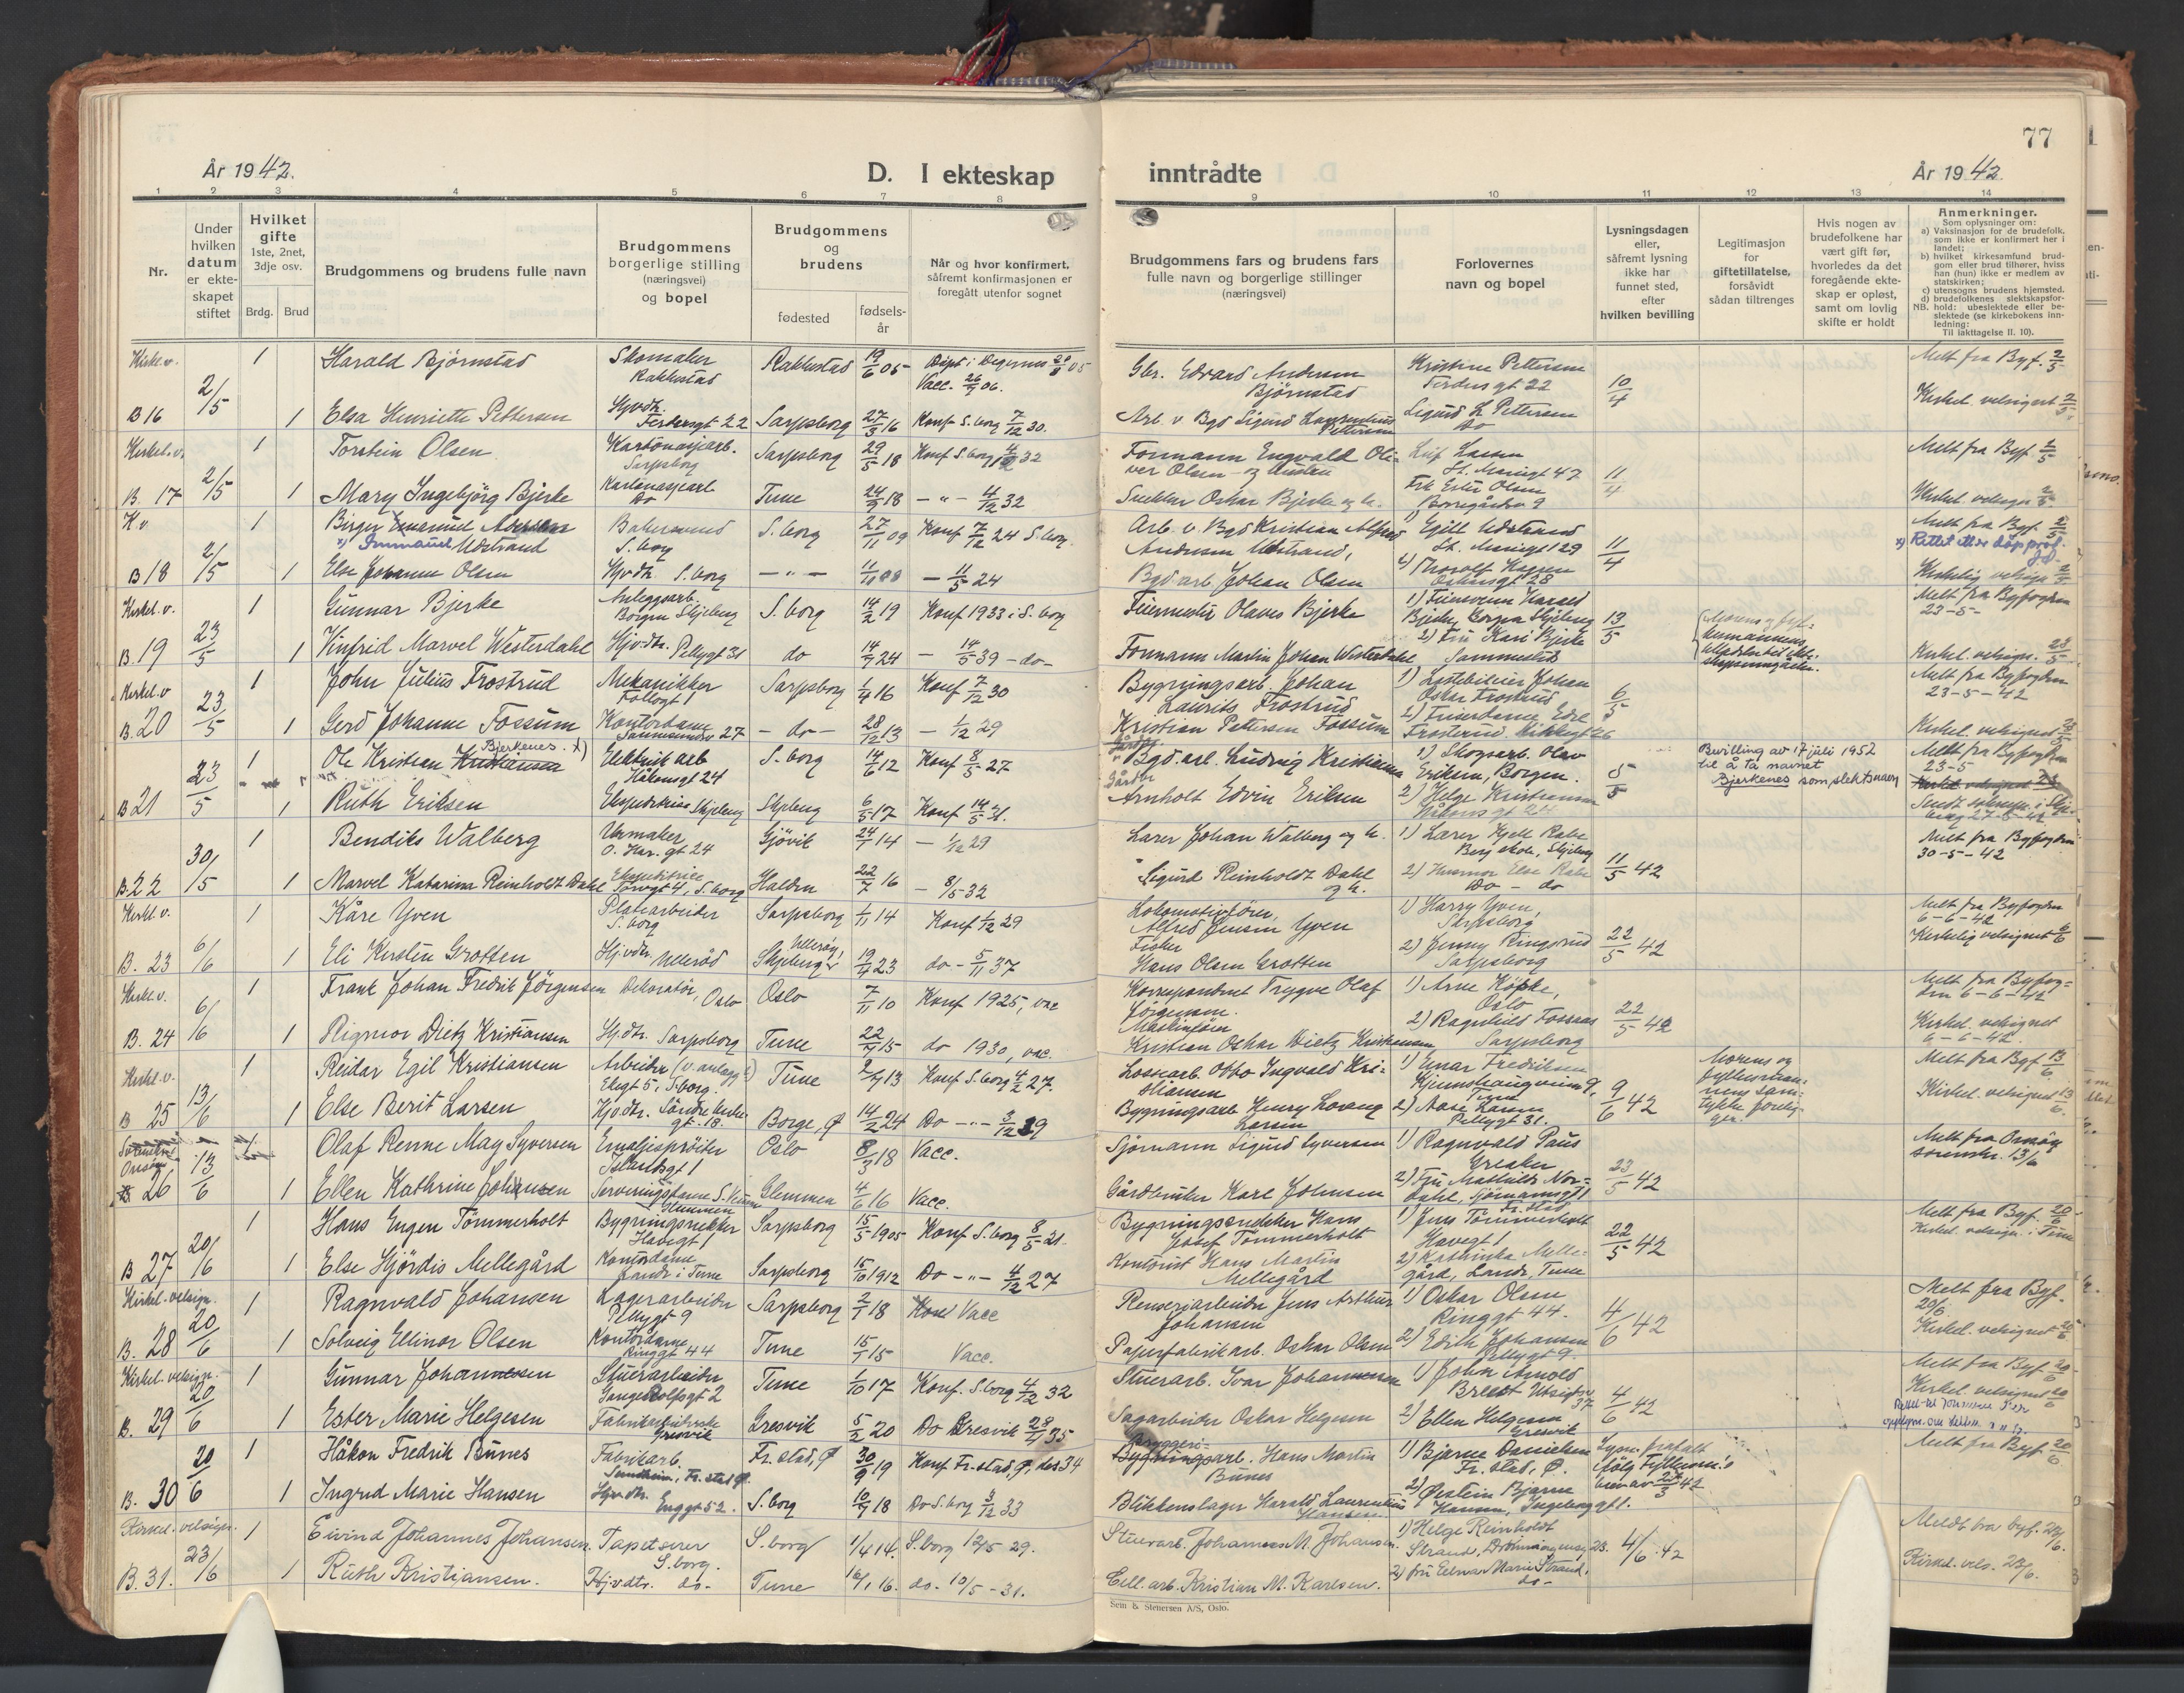 77
År 1942.
D. I ekteskap inntrådte
År 1942.
1 2 3 4 5 6 7 8 9 10 11 12 13 14
Nr.
Under hvilken datum er ekteskapet stiftet
Hvilket gifte 1ste, 2net, 3dje osv.
Brdg. Brud
Brudgommens og brudens fulle navn
Brudgommens borgerlige stilling (næringsvei) og bopel
Brudgommens og brudens
fødested
fødselsår
Når og hvor konfirmert, såfremt konfirmasjonen er foregått utenfor sognet
Brudgommens fars og brudens fars fulle navn og borgerlige stillinger (næringsvei)
Forlovernes navn og bopel
Lysningsdagen eller, såfremt lysning ikke har funnet sted, efter hvilken bevilling
Legitimasjon for giftetillatelse, forsåvidt sådan tiltrenges
Hvis nogen av brudefolkene har vært gift før, hvorledes da det foregående ekteskap er opløst, samt om lovlig skifte er holdt
Anmerkninger.
Som oplysninger om:
a) Vaksinasjon for de brudefolk, som ikke er konfirmert her i landet;
b) hvilket kirkesamfund brudgom eller brud tilhører, hviss han (hun) ikke er medlem av statskirken;
c) utensogns brudens hjemsted.
d) brudefolkenes slektskapsforhold: ubeslektede eller beslektede (se kirkebokens innledning:
NB.
Til iakttagelse II. 10).
Kirkel. v. 1 Harald Bjørnstad Skomaker Rakkestad Rakkestad 19/6 05 Døpt i Degernes Vacc. 26/9 06. Gbr. Edvard Andersen Bjørnstad Kristine Pettersen Ferdensgt 22 10/4 Melt fra Byf. 2/5
B 16 2/5 1 Elsa Henriette Pettersen Hjv.dtr. Sarpsborg 27/3 16 Konf S. borg 7/12 30. Sigurd L. Pettersen do Kirkel. velsignet 2/5
Kirkel. v. 1 Torstein Olsen Kartonasjearb. Sarpsborg Sarpsborg 29/5 18 Konf S. borg 4/12 32 Formann Engvald Oliver Olsen Leif Larsen St. Mariegt 47 11/4 Melt fra Byf. 2/5
B. 17 2/5 1 Mary Ingebjörg Bjerke Kartonasjearb do Tune 24/9 18 - " - 4/12 32 Snekker Oskar Bjerke og h. Frk Ester Olsen Kirkel. velsign. 2/5
K. v. 1 Birger Emanuel x) Immanuel Udstrand S. borg S. borg 27/11 09 Konf 7/12 24 S. borg. Arb. v. Bgd Kristian Alfred Andersen Udstrand, 1) Egill Udstrand St. Mariegt 29 11/4 Melt fra Byf. 2/5 x) Rettet etter dåp prot.
B 18 2/5 1 Else Johanne Olsen Hjv.dtr. S. borg - " - - 11/5 24 Bgd arb. Johan Olsen Kirkelig velsign 2/5
Kirkel. v. 1 Gunnar Bjerke Anleggsarb. Borgen Skjeberg S. borg 14/2 19 Konf 1933 i S. borg Feiermester Olaves Bjerke 1) Feiersvenn Harald Bjerke, Borgen Skjeberg 13/5 Melt fra Byfogden 23-5-
B. 19 23/5 1 Vinfrid Marvel Westerdahl Hjv.dtr. Pellygt 31 do 14/9 24 - 14/5 39 - do - Formann Martin Johan Westerdahl 2) Fru Kari Bjerke Sammested Kirkel. velsign. 23/5
Kirkel. v 1 John Julius Frostrud Mekanikker Follogt 1 Sarpsborg 1/4 16 Konf 7/12 30 Bygningsarb. Johan Laurits Frostrud Oskar Frostrud 6/5 Melt fra Byfogden 23-5-42
B. 20 23/5 1 Gerd Johanne Fossum Kontordame - do - 28/12 13 - 1/12 29 Kristian Pettersen Fossum Kirkel. velsignet 23/5
1 Ole Kristian Kristiansen Bjerkenes. x) Elektrik arb Håkonsgt 24 S. borg 14/6 12 Konf 8/5 27 Bgd. arb. Ludvig Kristiansen 1) Skogsarb. Olav Eriksen, Borgen. 5/5 Bevilling av 17 juli 1952 til å ta navnet Bjerkenes som slektsnavn Melt fra Byfogden 23-5
B 21 23/5 1 Ruth Eriksen Ekspeditrise Skjeberg Skjeberg 6/5 17 Konf 14/5 31. Gårdbr Arnholt Edvin Eriksen 2) Helge Kristiansen Håkonsgt 24
1 Bendiks Walberg Urmaker O. Har. gt 24 Gjövik 24/1 14 - 1/12 29 Lærer Johan Walberg og h. 1) Lærer Kjell Rabe Berg skole, Skjeberg Melt fra Byfogden 30-5-42
B. 22 30/5 1 Marvel Katarina Reinholdt Dahl Ekspeditrice Torvgt 4, S. borg Halden 22/7 16 - 8/5 32 " Sigurd Reinholdt Dahl og h. 2) Husmor Else Rabe do - do 11/5 42
Kirkel. v. 1 Kåre Yven Platearbeider S. borg Sarpsborg 1/11 14 Konf 1/12 29 Lokomotivfører, Alfred Jensen Yven 1) Harry Yven, Sarpsborg Melt fra Byfogden 6-6-42
B. 23 6/6 1 Eli Kirsten Grotten Hjv.dtr Ullerød Ullerøy, Skjeberg 19/4 23 do - 5/11 37 Fisker Hans Olsen Grotten 2) Jenny Ringsrud Sarpsborg 22/5 42 Kirkelig velsignet 6/6
Kirkel. v. 1 Frank Johan Fredrik Jörgensen Dekoratør, Oslo Oslo 7/11 10 Konf 1925, vac Korrespondent Trygve Olaf Jörgensen. 1) Arne Köpke, Oslo Melt fra Byfogden 6-6-42
B. 24 6/6 1 Rigmor Dietz Kristiansen Hj.dtr. Sarpsborg Tune 22/4 15 do 1930, vac. Maskinfører Kristian Oskar Dietz Kristiansen 2) Ragnhild Fossaas Sarpsborg 22/5 42 Kirkel. velsignet 6-6-42.
Kirkel. v. 1 Reidar Egil Kristiansen Arbeider (v. anlegg) Elvegt 5, S.borg Tune 13 Konf S. borg 4/2 27. Lossearb. Otto Ingvald Kristiansen 1) Einar Fredriksen Tune Morens og fyllesmannens samtykke foreligger. Melt fra Byf. 13/6
B 25 13/6 1 Else Berit Larsen Hjv.dtr. Söndre gt. 18. Borge, Ø 14/2 24 Do - " - 3/12 39 Bygningsarb Henry Larsen 2) Aase Larsen Pellygt 31. 9/6 42 Kirkel. velsignet 13/6.
Onsøy Olaf Renne May Syversen Emaljesprøiter Oslo 8/3 18 Vacc. Sjømann Sigurd Syversen 1) Ragnvald Paus Greaker Melt fra Onsøy sorenskr. 13/6
26 13/6 1 Ellen Kathrine Johnsen Serveringsdame Glemmen 4/6 16 Vacc. Gårdbruker Karl Johnsen 2) Fru Mathilde Nordahl, Sjömannsgt 1 Fr. stad 23/5 42
1 Hans Eugen Tömmerholt Bygningssnekker Havegt 1 Sarpsborg 15/5 1905 Konf S. borg 8/5 21. Bygningssnekker Hans Josef Tömmerholt 1) Jens Tömmerholt Havegt 1 Melt fra Byf. 20/6 Kirkel. velsign. i Tune
B 27 20/6 1 Else Hjördis Mellegård Kontordame Lande i Tune Sarpsborg 15/10 1912 Do - " - 4/12 27 Kontorist Hans Martin Mellegård 2) Kathinka Mellegård, Lande, Tune 22/5 42
Kirkel. velsign. 1 Ragnvald Johansen Lagerarbeider Pellygt 9 Sarpsborg 2/1 18 Konf Vacc Renseriarbeider Jens Arthur Johansen 1) Oskar Olsen Ringgt 44. Melt fra Byf. 20/6
B. 28 20/6 1 Solveig Ellinor Olsen Kontordame Ringgt 44 Tune 15/7 15 Vacc. Papirfabrikarb. Oskar Olsen 2) Edith Johansen Pellygt 9. 4/6 42 Kirkel. velsignet 20/6
Kirkel. velsign. 1 Gunnar Johannesen Stuerarbeider Gangerolfsgt 2 Tune 1/10 17 Konf. S. borg 4/12 32 Stuerarb. Ivar Johannesen 1) John Arnold 37 Melt fra Byf. 20/6
B. 29 20/6 1 Ester Marie Helgesen Fabrikarbeiderske Gresvik Gresvik 5/2 20 Do Gresvik 28/4 35 Sagarbeider Oskar Helgesen 2) Ellen Helgesen Gresvik 4/6 42 Kirkel. velsignet 20/6
1 Håkon Fredrik Bunes Fabrikarb. Fr. stad, Ø 30/9 19 Konf Fr. stad, Ø, 34 Bryggeriarb. Hans Martin Bunes 1) Bjarne Danielsen Fr. stad, Ø. Melt fra Byf. 20/6
B. 30 20/6 1 Ingrid Marie Hansen Hjv.dtr. Enggt 52. S. borg 10/9 18 Do S. borg 3/12 33 Blikkenslager Harald Laurentius Hansen 2) Øistein Bjarne Hansen, Ingeborggt 1.
Kirkel. velsign. 1 Eivind Johannes Johansen Tapetserer S. borg. S. borg 1/4 14. S. borg 12/5 29. Stuerarb. Johannes M. Johansen. 1) Helge Reinholdt Strand, Dronningensgt 23. 4/6 . 42 Meldt fra byf. 23/6.
B. 31. 23/6 1 Ruth Kristiansen. Hjv.dtr. do. Tune 16/1 16. do. 10/5 - 31. Cell. arb. Kristian M. Karlsen. 2) fru Elna Marie Strand, do - Kirkel. vels. 23/6.
Sem & Stenersen A/S, Oslo.